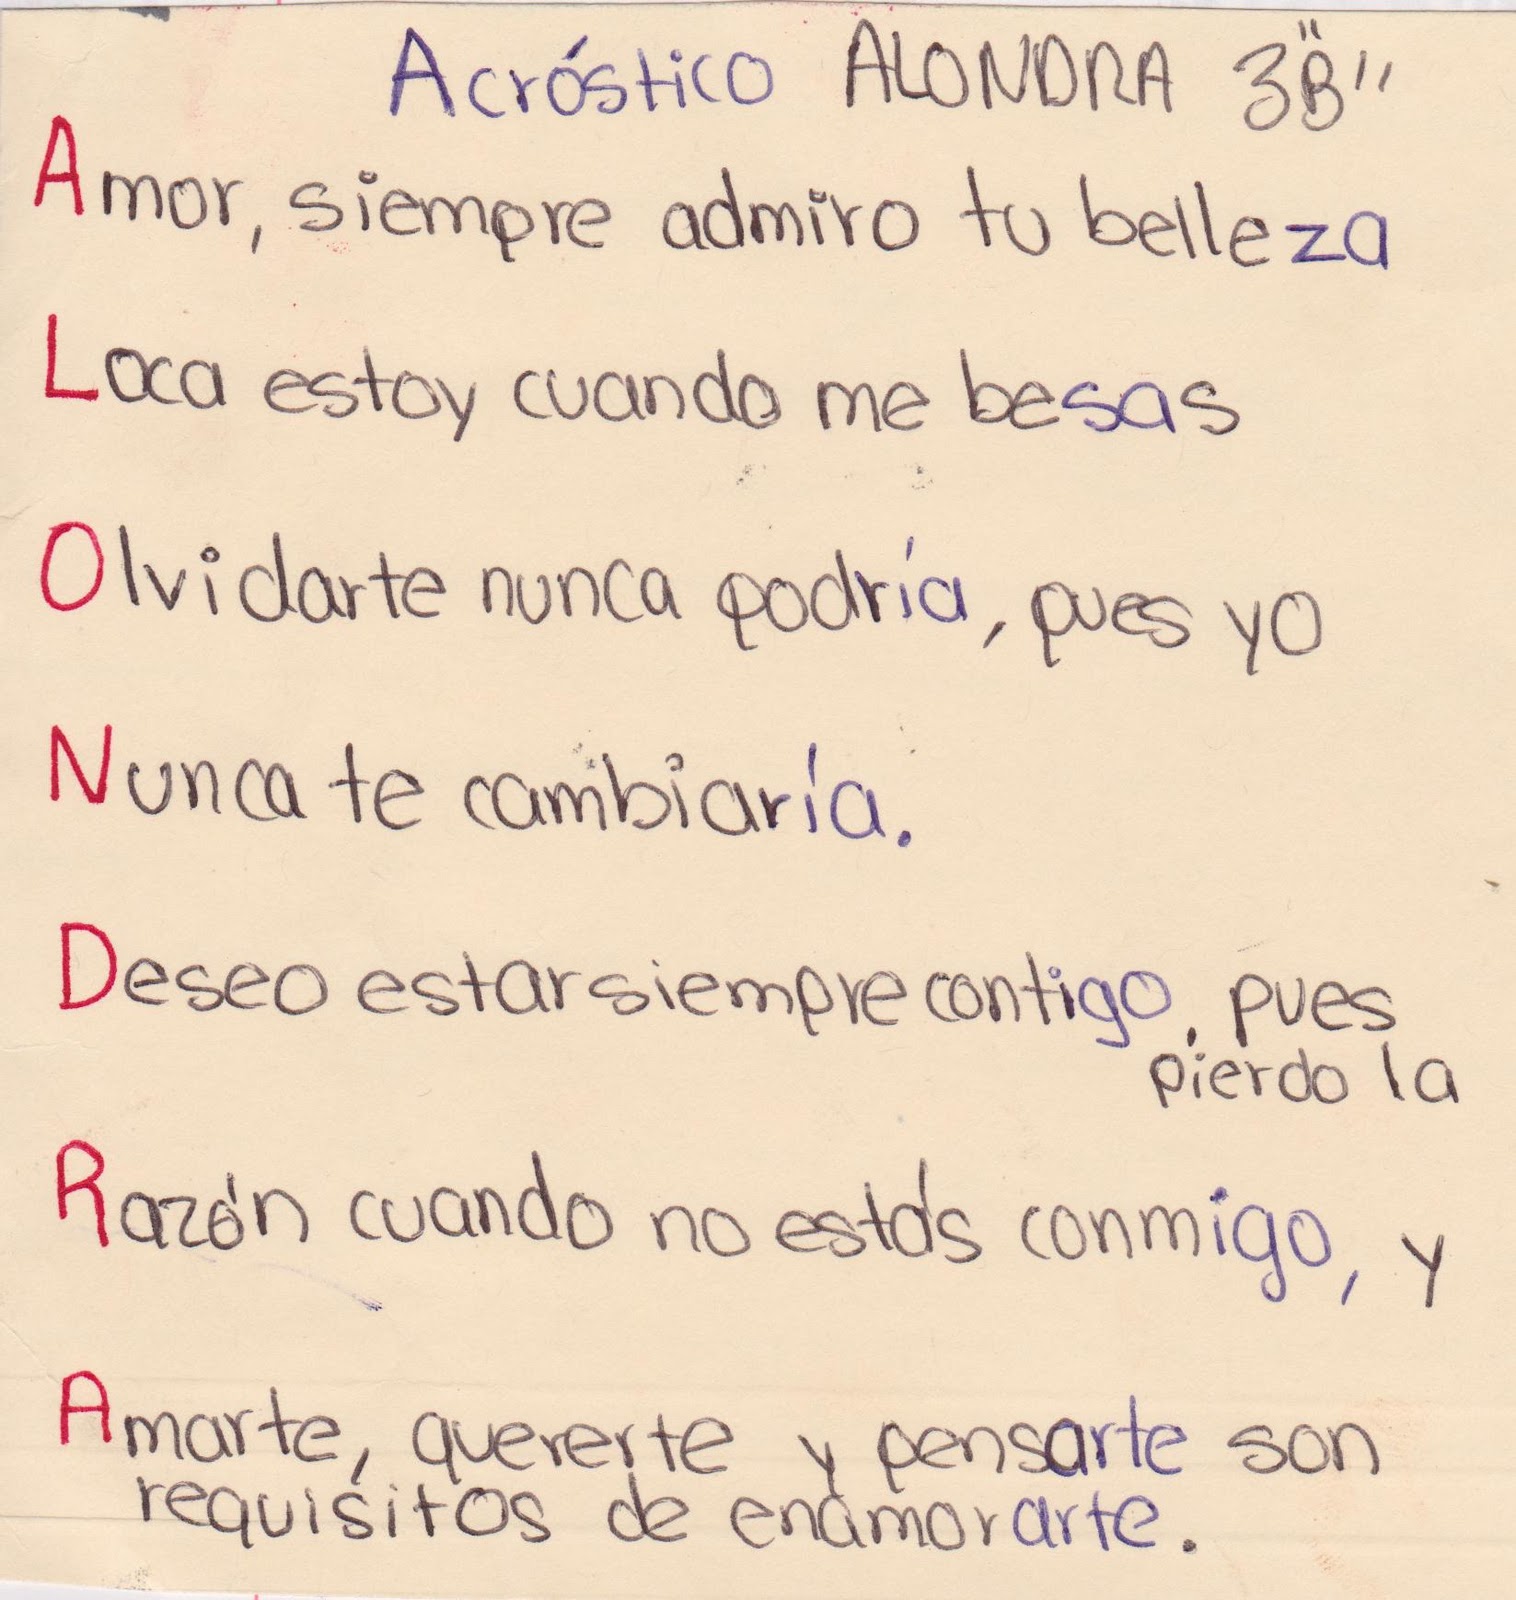 Acróstico ALONDRA 3"B"
Amor, siempre admiro tu belleza
Loca estoy cuando me besas
Olvidarte nunca podría, pues yo
Nunca te cambiaría.
Deseo estar siempre contigo, pues
pierdo la
Razón cuando no estás conmigo, y
Amarte, quererte y pensarte son
requisitos de enamorarte.